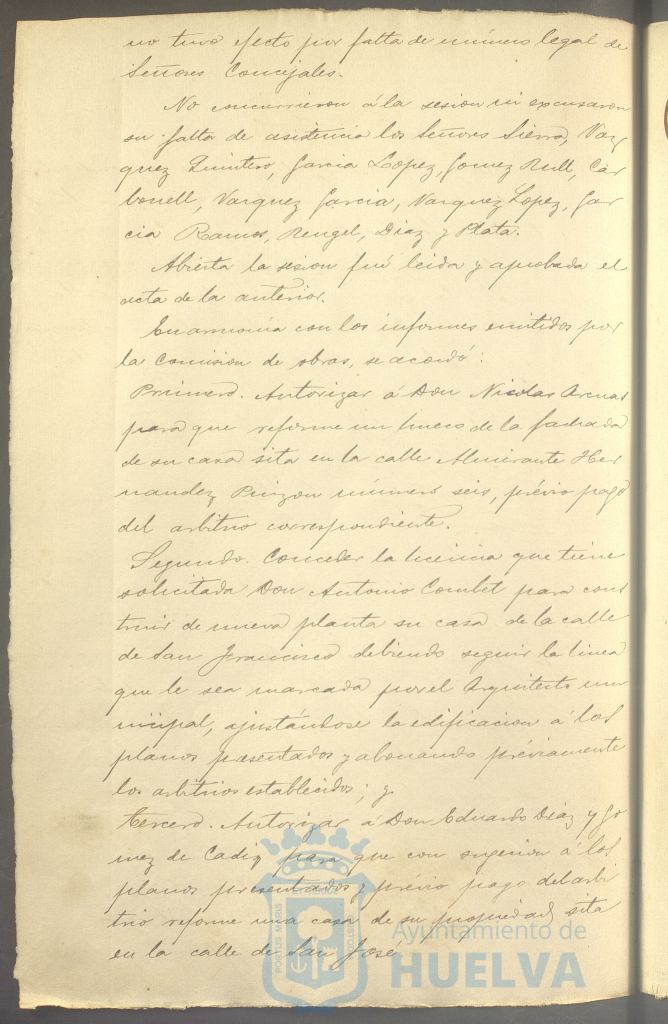 no tuvo efecto por falta de número legal de
Señores Concejales.
No concurrieron á la sesion ni excusaron
su falta de asistencia los Señores Sierra, Vaz
quez Quintero, Garcia Lopez, Gomez Rull, Car
bonell, Vazquez Garcia, Vazquez Lopez, Gar
cia Ramos, Rengel, Diaz y Plata.
Abierta la sesion fué leida y aprobada el
acta de la anterior.
En armonia con los informes emitidos por
la Comision de obras, se acordó:
Primero. Autorizar á Don Nicolas Arenas
para que reforme un hueco de la fachada
de su casa sita en la calle Almirante Her
nandez Pinzon número seis, prévio pago
del arbitrio correspondiente.
Segundo. Conceder la licencia que tiene
solicitada Don Antonio Combet para cons
truir de nueva planta su casa de la calle
de San Francisco debiendo seguir la linea
que le sea marcada por el Arquitecto mu
nicipal, ajustándose la edificacion á los
planos presentados y abonando préviamente
los arbitrios establecidos; y
tercero. Autorizar á Don Eduardo Diaz y Go
mez de Cadiz para que con sugecion á los
planos presentados y prévio pago del arbi
trio reforme una casa de su propiedad sita
en la calle de San José
PORTUS MARIS
Ayuntamiento de
HUELVA